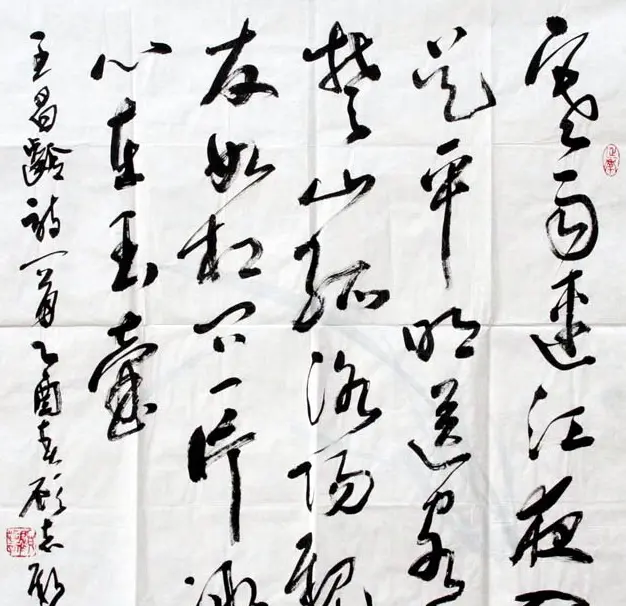 寒雨連江夜
吴平明送客
楚山孤洛陽親
友如相问一片冰
心在玉壺
王昌齡詩一首乙酉春顾志